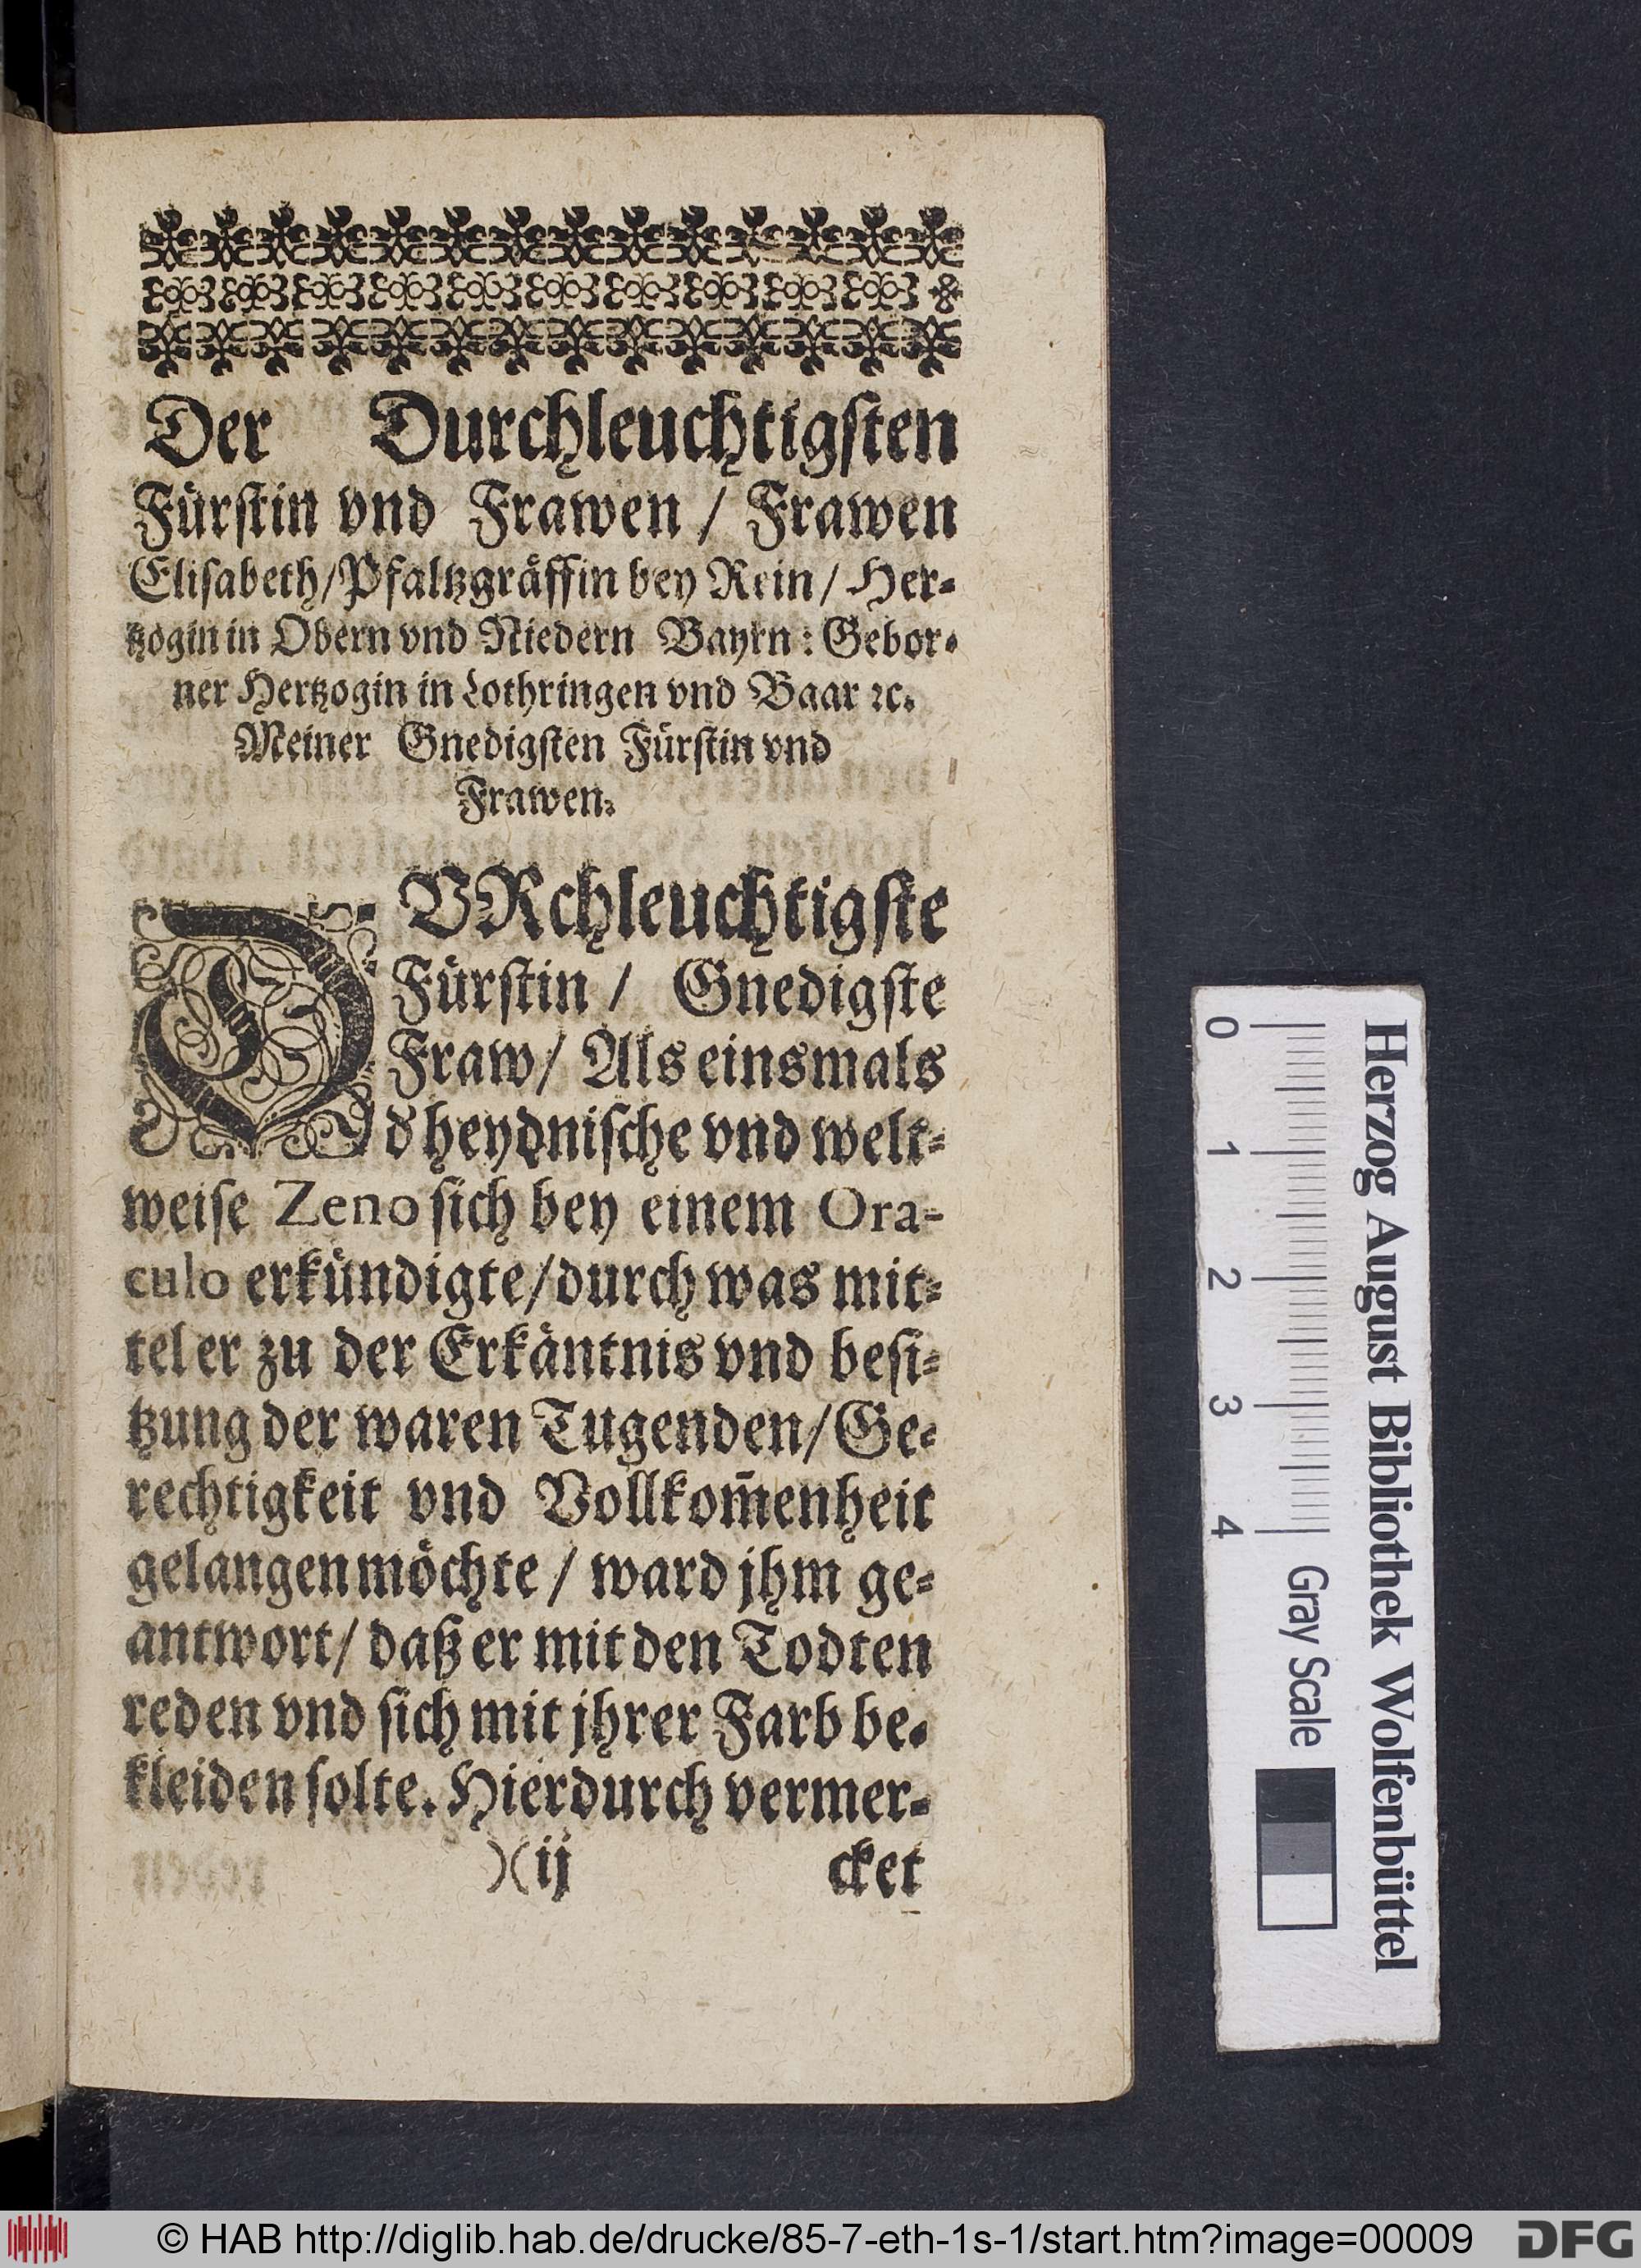 Der Durchleuchtigſten
Fürſtin vnd Frawen / Frawen
Eliſabeth/Pfaltzgräffin bey Rein/ Her-
tzogin in Obern vnd Niedern Bayrn: Gebor-
ner Hertzogin in Lothringen vnd Baar ꝛc.
Meiner Gnedigſten Fürſtin vnd
Frawen.
DVRchleuchtigſte
Fürſtin / Gnedigſte
Fraw/ Als einsmals
d' heydniſche vnd welt-
weiſe Zeno ſich bey einem Ora-
culo erkündigte/durch was mit-
tel er zu der Erkäntnis vnd beſi-
tzung der waren Tugenden/Ge-
rechtigkeit vnd Vollkom̃enheit
gelangen möchte / ward jhm ge-
antwort/ daß er mit den Todten
reden vnd ſich mit jhrer Farb be-
kleiden ſolte. Hierdurch vermer-
)(ij cket
Herzog August Bibliothek Wolfenbüttel
0 1 2 3 4 Gray Scale
© HAB http://diglib.hab.de/drucke/85-7-eth-1s-1/start.htm?image=00009
DFG